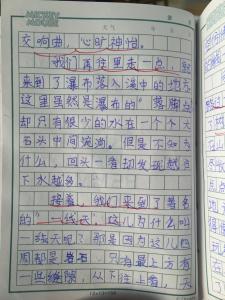 MICKEY
MOUSE
天气
交响曲，心旷神怡。
我们再往里走一点，就
来到了瀑布落入溪中的地方
这里虽然是瀑布的"落脚点
却只有很少的水在一个个大
石头中间流淌。但是不知为
什么，回头一看却发现越
下水越多。
接着，我们来到了著名
的"一线天"，这儿为什么叫
一线天呢？那是因为这儿四
周都是岩石，只有最上方有
一些缝隙，从下往上看，天